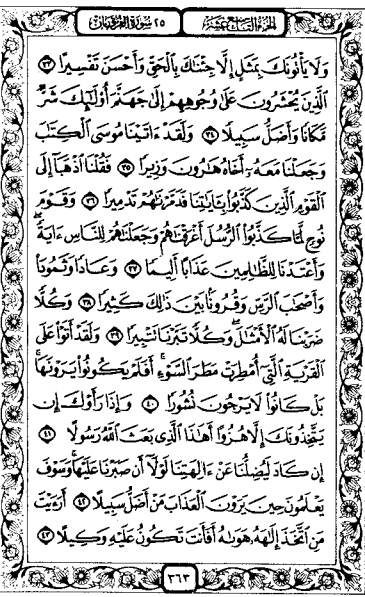 الجزء التاسع عشر ٢٥ سورة الفرقان
وَلَا يَأْتُونَكَ بِمَثَلٍ إِلَّا جِئْنَٰكَ بِٱلْحَقِّ وَأَحْسَنَ تَفْسِيرًا ٣٣
ٱلَّذِينَ يُحْشَرُونَ عَلَىٰ وُجُوهِهِمْ إِلَىٰ جَهَنَّمَ أُو۟لَٰٓئِكَ شَرٌّ
مَّكَانًا وَأَضَلُّ سَبِيلًا ٣٤ وَلَقَدْ ءَاتَيْنَا مُوسَى ٱلْكِتَٰبَ
وَجَعَلْنَا مَعَهُۥٓ أَخَاهُ هَٰرُونَ وَزِيرًا ٣٥ فَقُلْنَا ٱذْهَبَآ إِلَى
ٱلْقَوْمِ ٱلَّذِينَ كَذَّبُوا۟ بِـَٔايَٰتِنَا فَدَمَّرْنَٰهُمْ تَدْمِيرًا ٣٦ وَقَوْمَ
نُوحٍ لَّمَّا كَذَّبُوا۟ ٱلرُّسُلَ أَغْرَقْنَٰهُمْ وَجَعَلْنَٰهُمْ لِلنَّاسِ ءَايَةً ۖ
وَأَعْتَدْنَا لِلظَّٰلِمِينَ عَذَابًا أَلِيمًا ٣٧ وَعَادًا وَثَمُودَا۟
وَأَصْحَٰبَ ٱلرَّسِّ وَقُرُونًۢا بَيْنَ ذَٰلِكَ كَثِيرًا ٣٨ وَكُلًّا
ضَرَبْنَا لَهُ ٱلْأَمْثَٰلَ ۖ وَكُلًّا تَبَّرْنَا تَتْبِيرًا ٣٩ وَلَقَدْ أَتَوْا۟ عَلَى
ٱلْقَرْيَةِ ٱلَّتِىٓ أُمْطِرَتْ مَطَرَ ٱلسَّوْءِ ۚ أَفَلَمْ يَكُونُوا۟ يَرَوْنَهَا ۚ
بَلْ كَانُوا۟ لَا يَرْجُونَ نُشُورًا ٤٠ وَإِذَا رَأَوْكَ إِن
يَتَّخِذُونَكَ إِلَّا هُزُوًا أَهَٰذَا ٱلَّذِى بَعَثَ ٱللَّهُ رَسُولًا ٤١
إِن كَادَ لَيُضِلُّنَا عَنْ ءَالِهَتِنَا لَوْلَآ أَن صَبَرْنَا عَلَيْهَا ۚ وَسَوْفَ
يَعْلَمُونَ حِينَ يَرَوْنَ ٱلْعَذَابَ مَنْ أَضَلُّ سَبِيلًا ٤٢ أَرَءَيْتَ
مَنِ ٱتَّخَذَ إِلَٰهَهُۥ هَوَىٰهُ أَفَأَنتَ تَكُونُ عَلَيْهِ وَكِيلًا ٤٣
٣٦٣